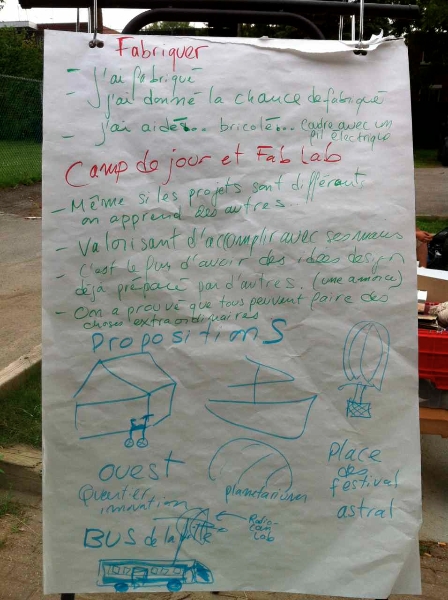 Fabriquer
- J'ai fabriqué
- J'ai donné la chance de fabriqué
- J'ai aidé... bricolé... cadre avec un
fil électrique
Camp de jour et Fab Lab
- Même si les projets sont différent
on apprend des autres.
- Valorisant d'accomplir avec ses mains
- C'est le fun d'avoir des idées design
déjà préparé par d'autres. (une amorce)
- On a prouvé que tous peuvent faire des
choses extraordinaires
Propositions
ouest
Quartier
innovation
planetarium
Place
des
festival
astral
BUS de la
Lab